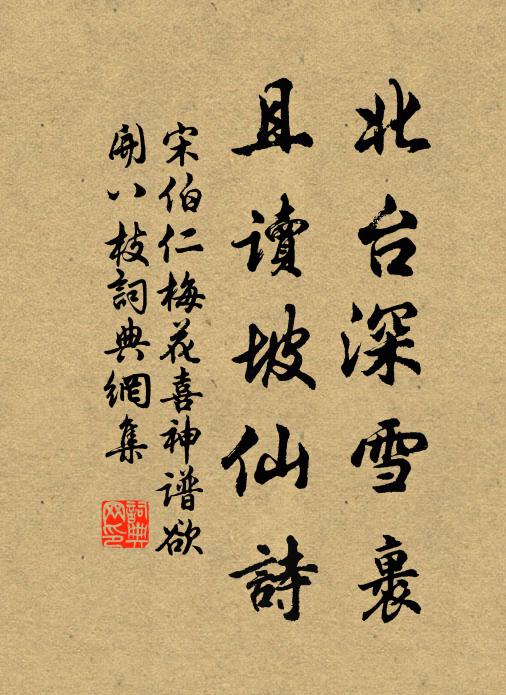 北台深雪裏
且读坡仙詩
宋伯仁梅花喜神谱欲
開八枝詞典網集
詞典
网印